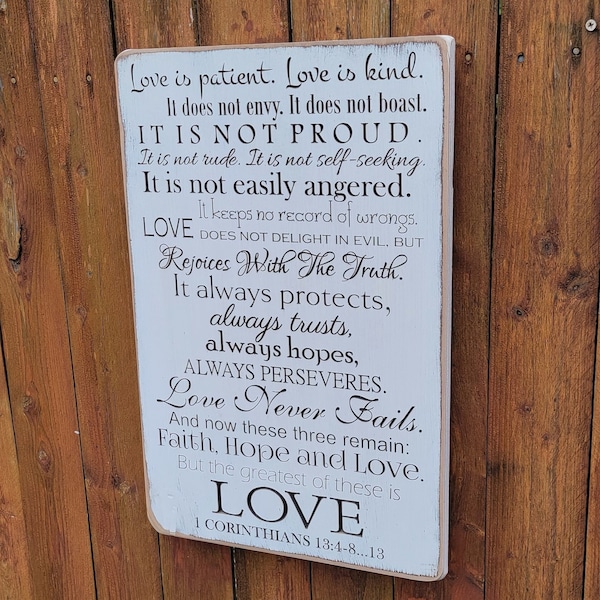 Love is patient. Love is kind.
It does not envy. It does not boast.
IT IS NOT PROUD.
It is not rude. It is not self-seeking.
It is not easily angered.
It keeps no record of wrongs.
LOVE DOES NOT DELIGHT IN EVIL, BUT
Rejoices With The Truth.
It always protects,
always trusts,
always hopes,
ALWAYS PERSEVERES.
Love Never Fails.
And now these three remain:
Faith, Hope and Love.
But the greatest of these is
LOVE
1 CORINTHIANS 13:4-8...13